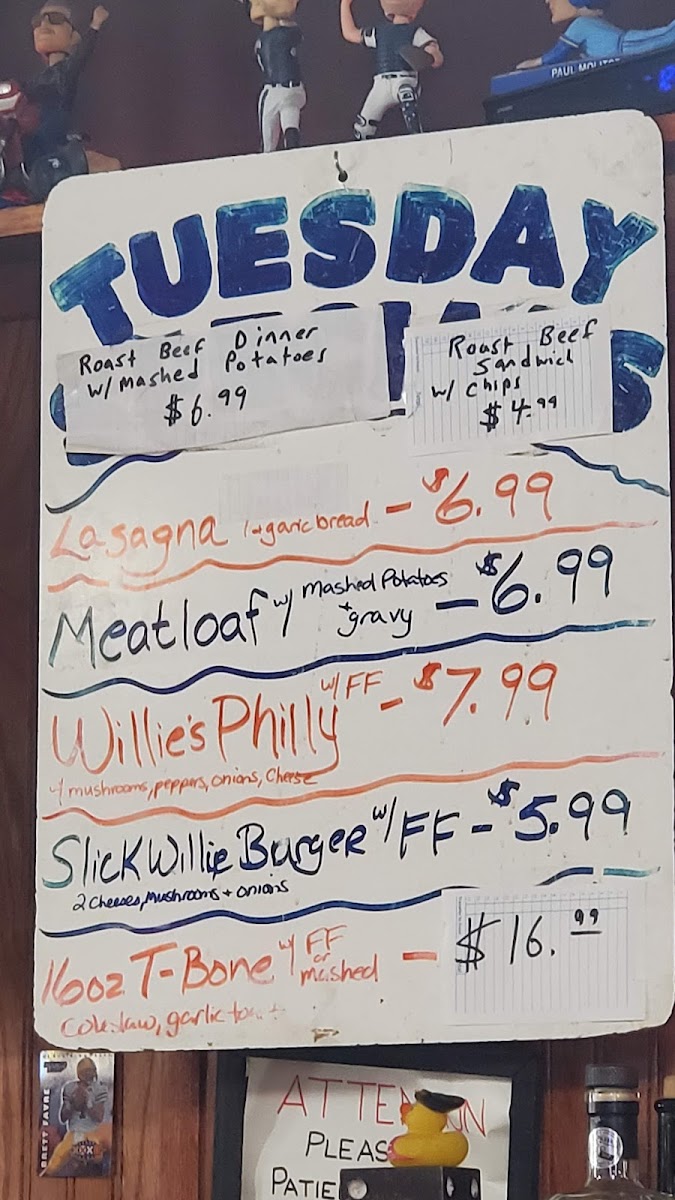 PAUL MOLITOR
TUESDAY
Roast Beef Dinner
w/ mashed Potatoes
$6.99
Roast Beef
Sandwich
w/ chips
$4.99
Lasagna + garic bread - $6.99
Meatloaf w/ mashed Potatoes
+ gravy - $6.99
Willie's Philly w/ FF - $7.99
w/ mushrooms, peppers, onions, Cheese
Slick Willie Burger w/ FF - $5.99
2 Cheeses, Mushrooms + onions
16oz T-Bone w/ FF
or
mashed - $16.99
coleslaw, garlic toast
BRETT FAVRE
PLEAS
PATIE